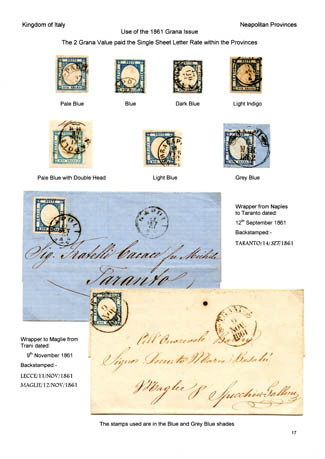 Kingdom of Italy
Neapolitan Provinces
Use of the 1861 Grana Issue
The 2 Grana Value paid the Single Sheet Letter Rate within the Provinces
Pale Blue
Blue
Dark Blue
Light Indigo
Pale Blue with Double Head
Light Blue
Grey Blue
Wrapper from Naples
to Taranto dated:
12th September 1861
Backstamped:-
TARANTO/14/SET/1861
Sig. Fratelli Cacace
Taranto
Wrapper to Maglie from
Trani dated:
9th November 1861
Backstamped:-
LECCE/11/NOV/1861
MAGLIE/12/NOV/1861
The stamps used are in the Blue and Grey Blue shades
17